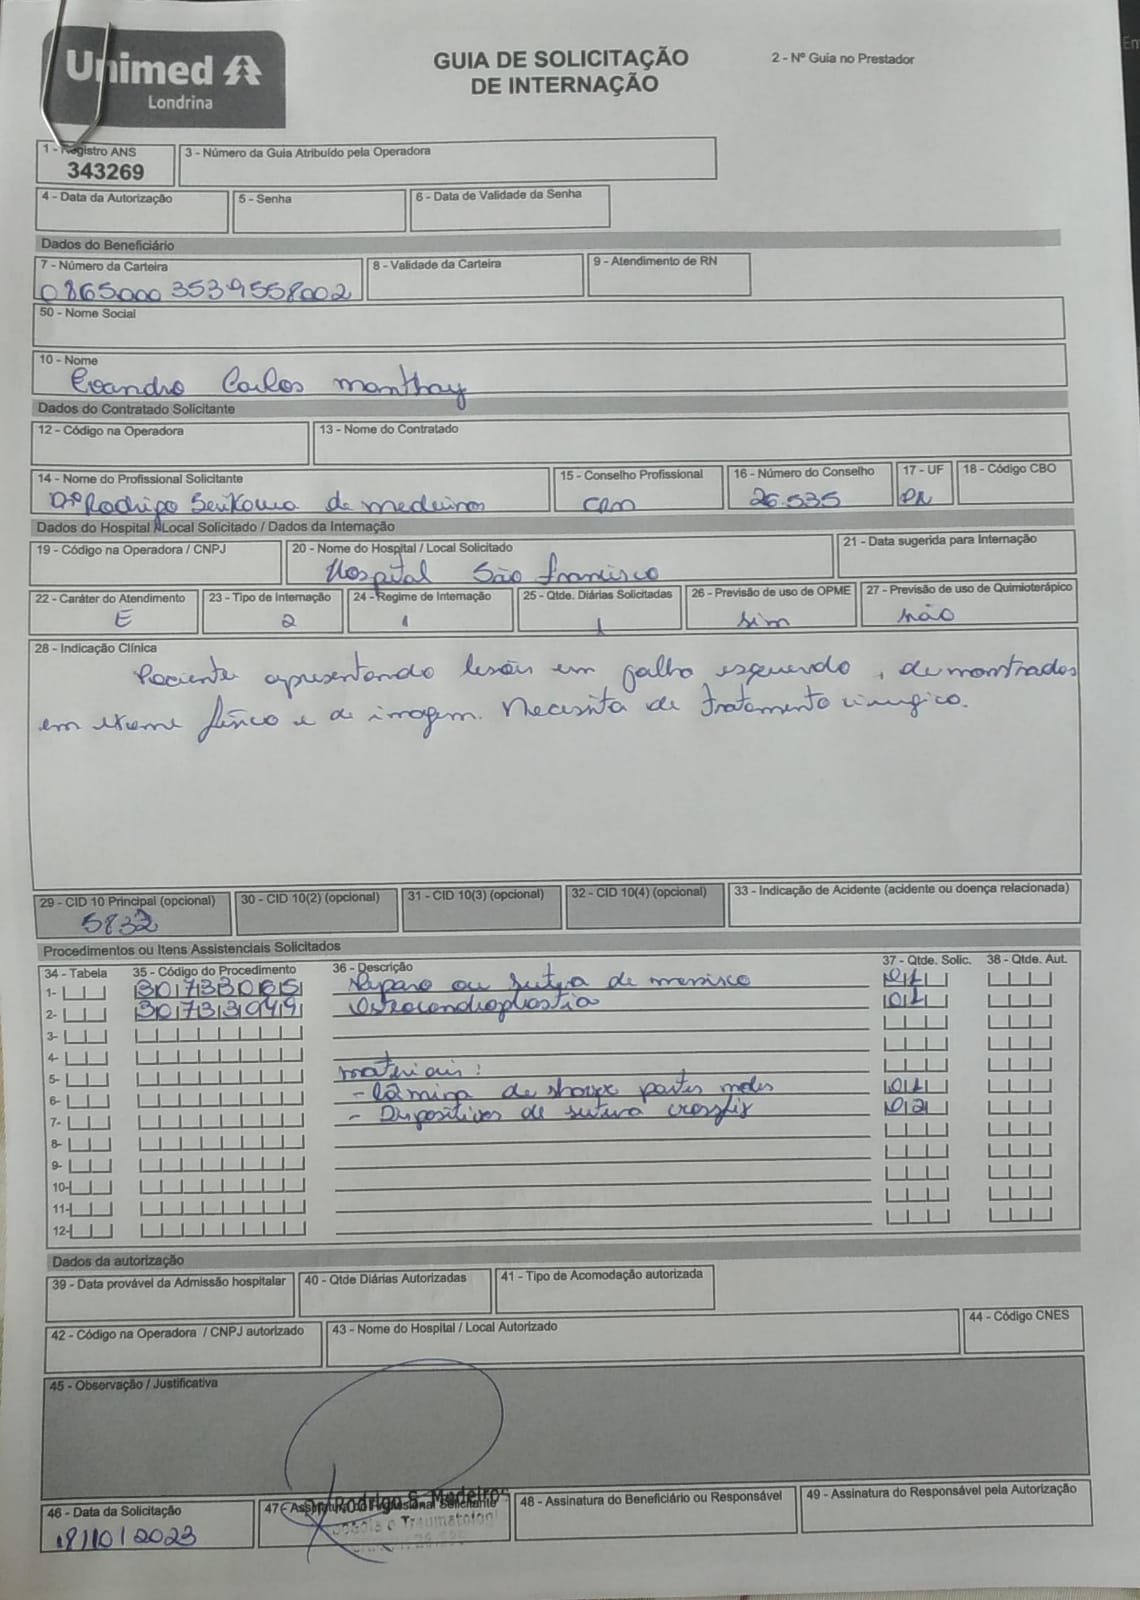 Unimed
Londrina
GUIA DE SOLICITAÇÃO
DE INTERNAÇÃO
2 - Nº Guia no Prestador
1 - Registro ANS
343269
3 - Número da Guia Atribuído pela Operadora
4 - Data da Autorização
5 - Senha
6 - Data de Validade da Senha
Dados do Beneficiário
7 - Número da Carteira
08650003539558002
8 - Validade da Carteira
9 - Atendimento de RN
50 - Nome Social
10 - Nome
Evandro Carlos Manthay
Dados do Contratado Solicitante
12 - Código na Operadora
13 - Nome do Contratado
14 - Nome do Profissional Solicitante
Drº Rodrigo Serikawa de medeiros
15 - Conselho Profissional
CRM
16 - Número do Conselho
26.535
17 - UF
PR
18 - Código CBO
Dados do Hospital / Local Solicitado / Dados da Internação
19 - Código na Operadora / CNPJ
20 - Nome do Hospital / Local Solicitado
Hospital São francisco
21 - Data sugerida para Internação
22 - Caráter do Atendimento
E
23 - Tipo de Internação
2
24 - Regime de Internação
1
25 - Qtde. Diárias Solicitadas
1
26 - Previsão de uso de OPME
sim
27 - Previsão de uso de Quimioterápico
não
28 - Indicação Clínica
Paciente apresentando lesões em joelho esquerdo, demonstrados
em exame físico e de imagem. Necessita de tratamento cirurgico.
29 - CID 10 Principal (opcional)
S832
30 - CID 10(2) (opcional)
31 - CID 10(3) (opcional)
32 - CID 10(4) (opcional)
33 - Indicação de Acidente (acidente ou doença relacionada)
Procedimentos ou Itens Assistenciais Solicitados
34 - Tabela
35 - Código do Procedimento
36 - Descrição
37 - Qtde. Solic.
38 - Qtde. Aut.
1- 30733065 Reparo ou sutura de menisco 01
2- 30733049 Osteocondroplastia 01
3-
4-
5- materiais:
6- - lâmina de shaver partes moles 01
7- - Dispositivos de sutura crossfix 02
8-
9-
10-
11-
12-
Dados da autorização
39 - Data provável da Admissão hospitalar
40 - Qtde Diárias Autorizadas
41 - Tipo de Acomodação autorizada
42 - Código na Operadora / CNPJ autorizado
43 - Nome do Hospital / Local Autorizado
44 - Código CNES
45 - Observação / Justificativa
46 - Data da Solicitação
18/10/2023
47 - Assinatura do Profissional Solicitante
Dr. Rodrigo S. Medeiros
e Traumatologi
48 - Assinatura do Beneficiário ou Responsável
49 - Assinatura do Responsável pela Autorização